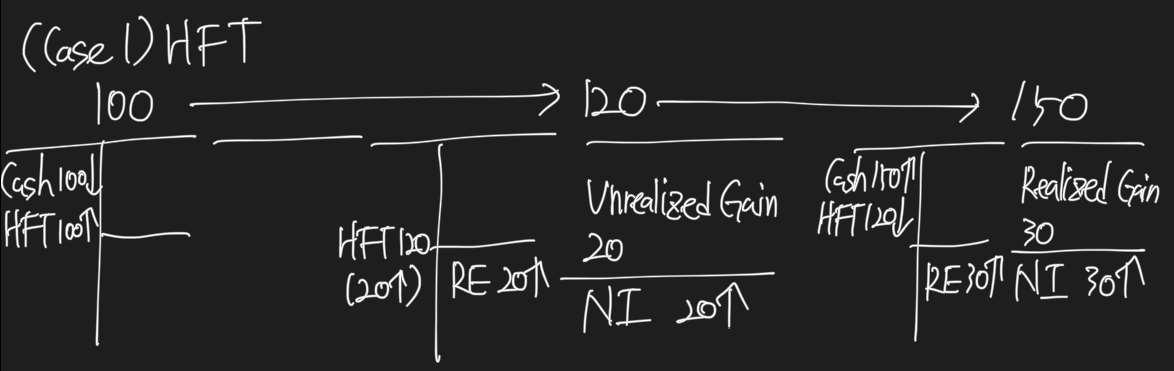 (Case 1) HFT
100 → 120 → 150
Cash 100↓
HFT 100↑
HFT 120
(20↑)
RE 20↑
Unrealized Gain
20
NI 20↑
Cash 150↑
HFT 120↓
RE 30↑
Realized Gain
30
NI 30↑